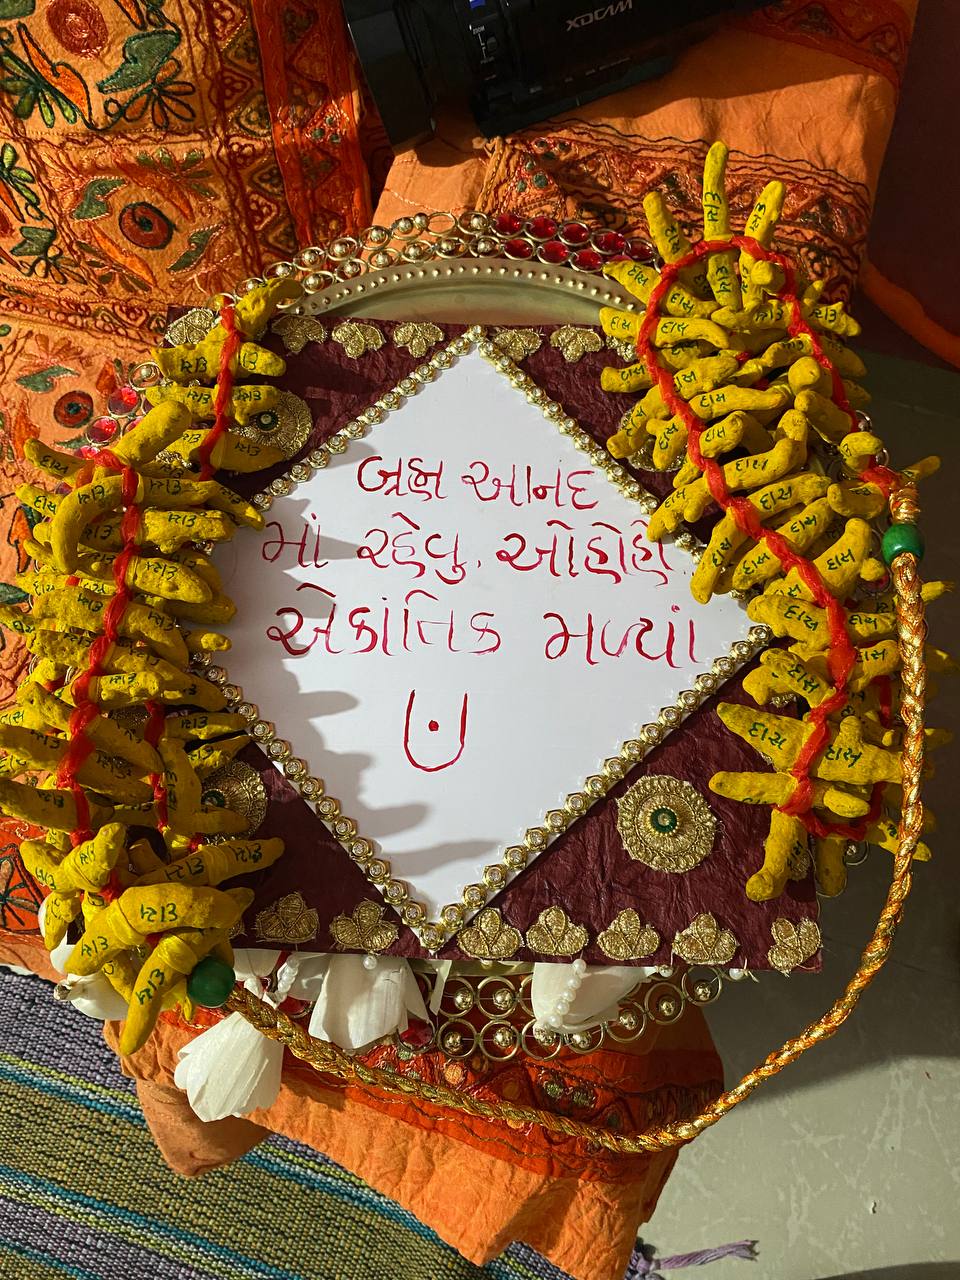 XDCAM
બ્રહ્મ આનંદ
માં રહેવુ. ઓહોહો
એકાંતિક મળ્યાં
દાસ